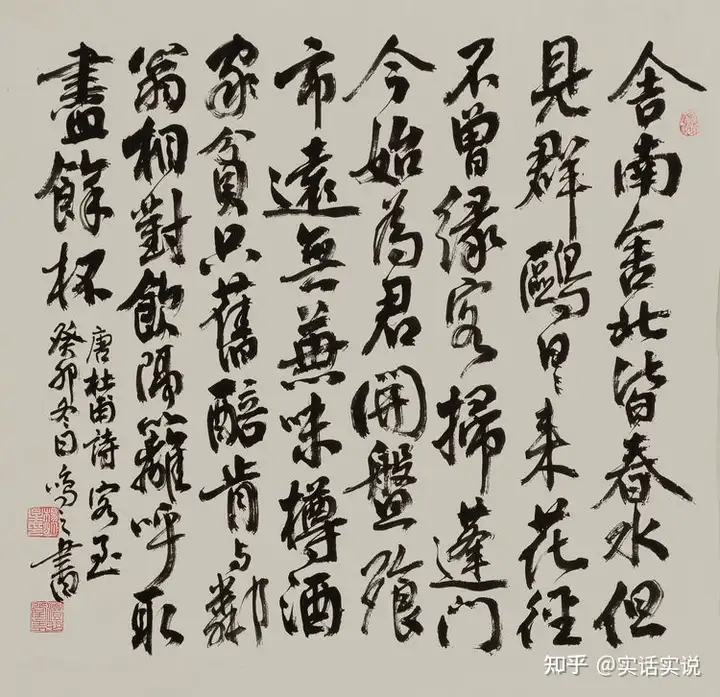 舍南舍北皆春水但
見群鷗日々来花徑
不曾緣客掃蓬門
今始為君開盤飧
市遠無兼味樽酒
家貧只舊醅肯与鄰
翁相對飲隔籬呼取
盡餘杯
唐杜甫詩客至
癸卯冬日鳴之書
知乎 @实话实说